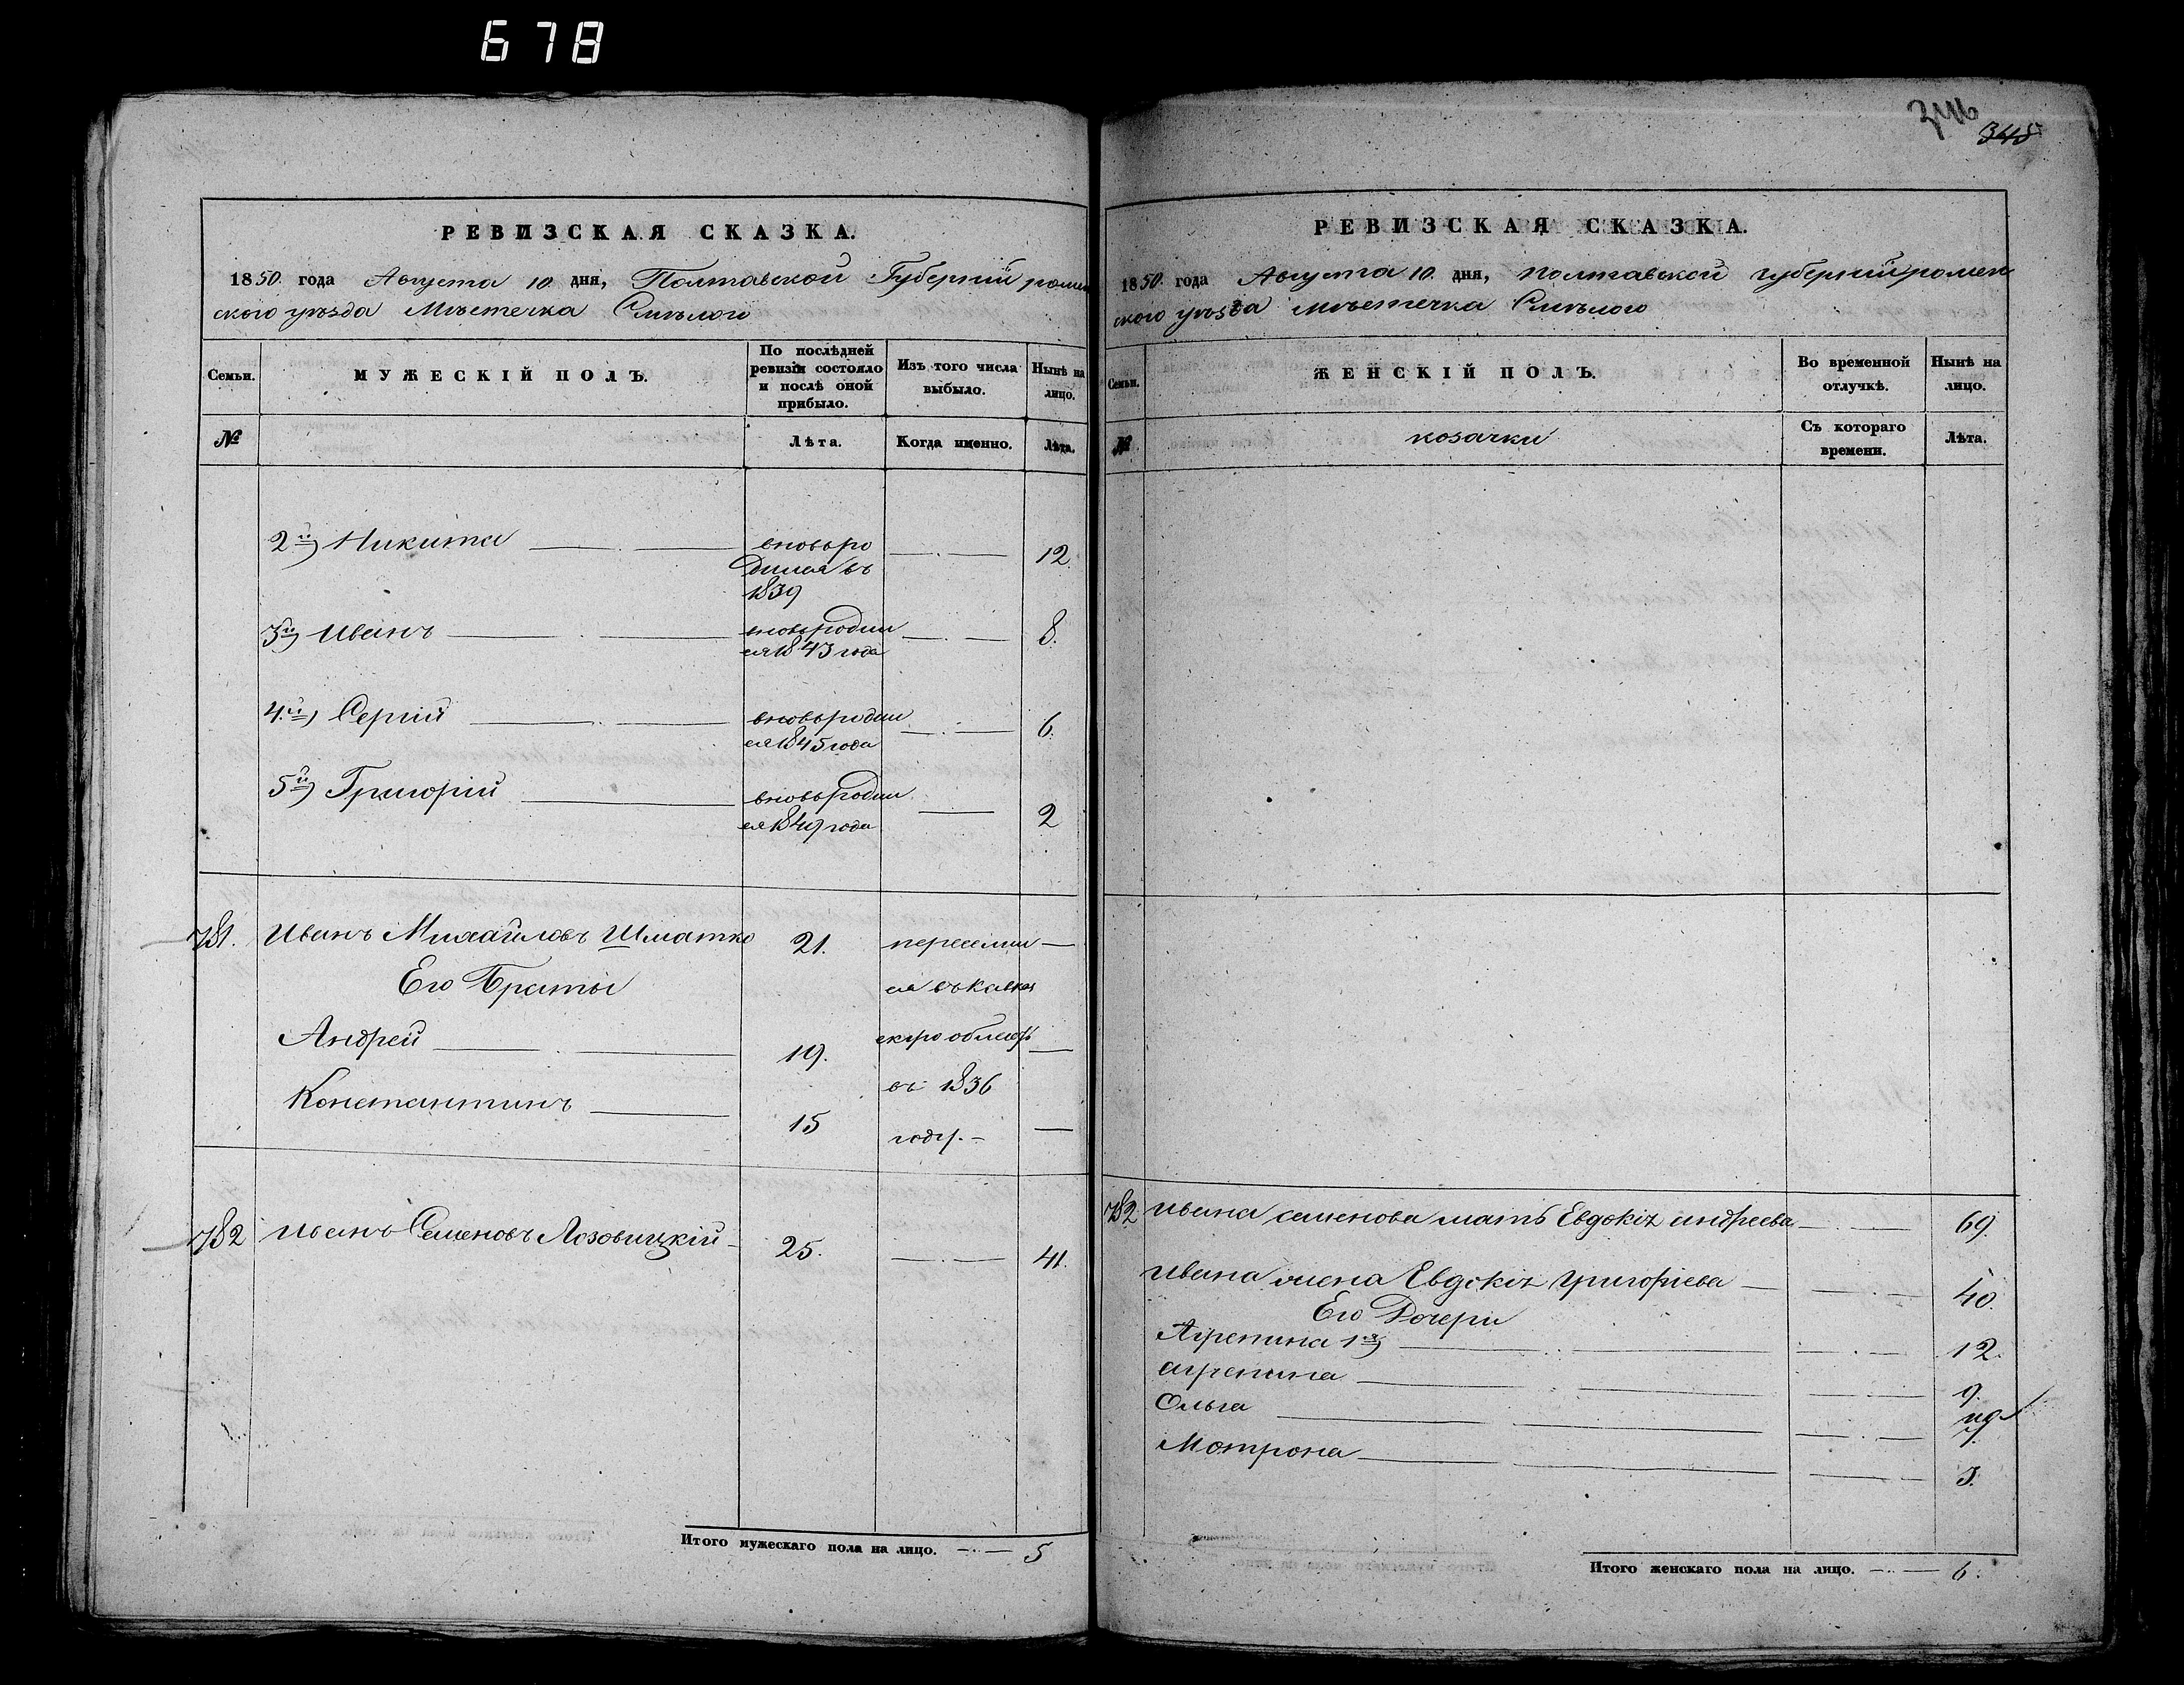 678
346
345
РЕВИЗСКАЯ СКАЗКА.
1850 года Августа 10 дня, Полтавской Губерніи ромен
ского уѣзда Мѣстечка Смѣлого
Семьи.
МУЖЕСКІЙ ПОЛЪ.
По послѣдней ревизіи состояло и послѣ оной прибыло.
Изъ того числа выбыло.
Нынѣ на лицо.
№
Лѣта.
Когда именно.
Лѣта.
2й) Никита — вновьро — 12.
дился въ
1839
3й) Иванъ — вновьродил — 8.
ся 1843 года
4й) Сергій — вновьродил — 6.
ся 1845 года
5й) Григорій — вновьродил — 2
ся 1849 года
781. Иванъ Михайловъ Шматко 21. переселил —
Его Браты ся въ Кавказ
Андрей — 19. скую область —
въ 1836
Константинъ — 15 году. — —
782 Иванъ Семеновъ Лозовицкій — 25. — 41.
Итого мужескаго пола на лицо. — 5
РЕВИЗСКАЯ СКАЗКА.
1850 года Августа 10 дня, Полтавской губерніи ромен
ского уѣзда мѣстечка Смѣлого
Семьи.
ЖЕНСКІЙ ПОЛЪ.
Во временной отлучкѣ.
Нынѣ на лицо.
№
козачки
Съ котораго времени.
Лѣта.
782 Ивана семенова мать Евдокія андреева — 69.
Ивана жена Евдокія Григоріева — 40.
Его Дочери
Агрепина 1я) — 12.
агрепина — 9.
Ольга —
Мотрона — 3.
Итого женскаго пола на лицо. — 6.